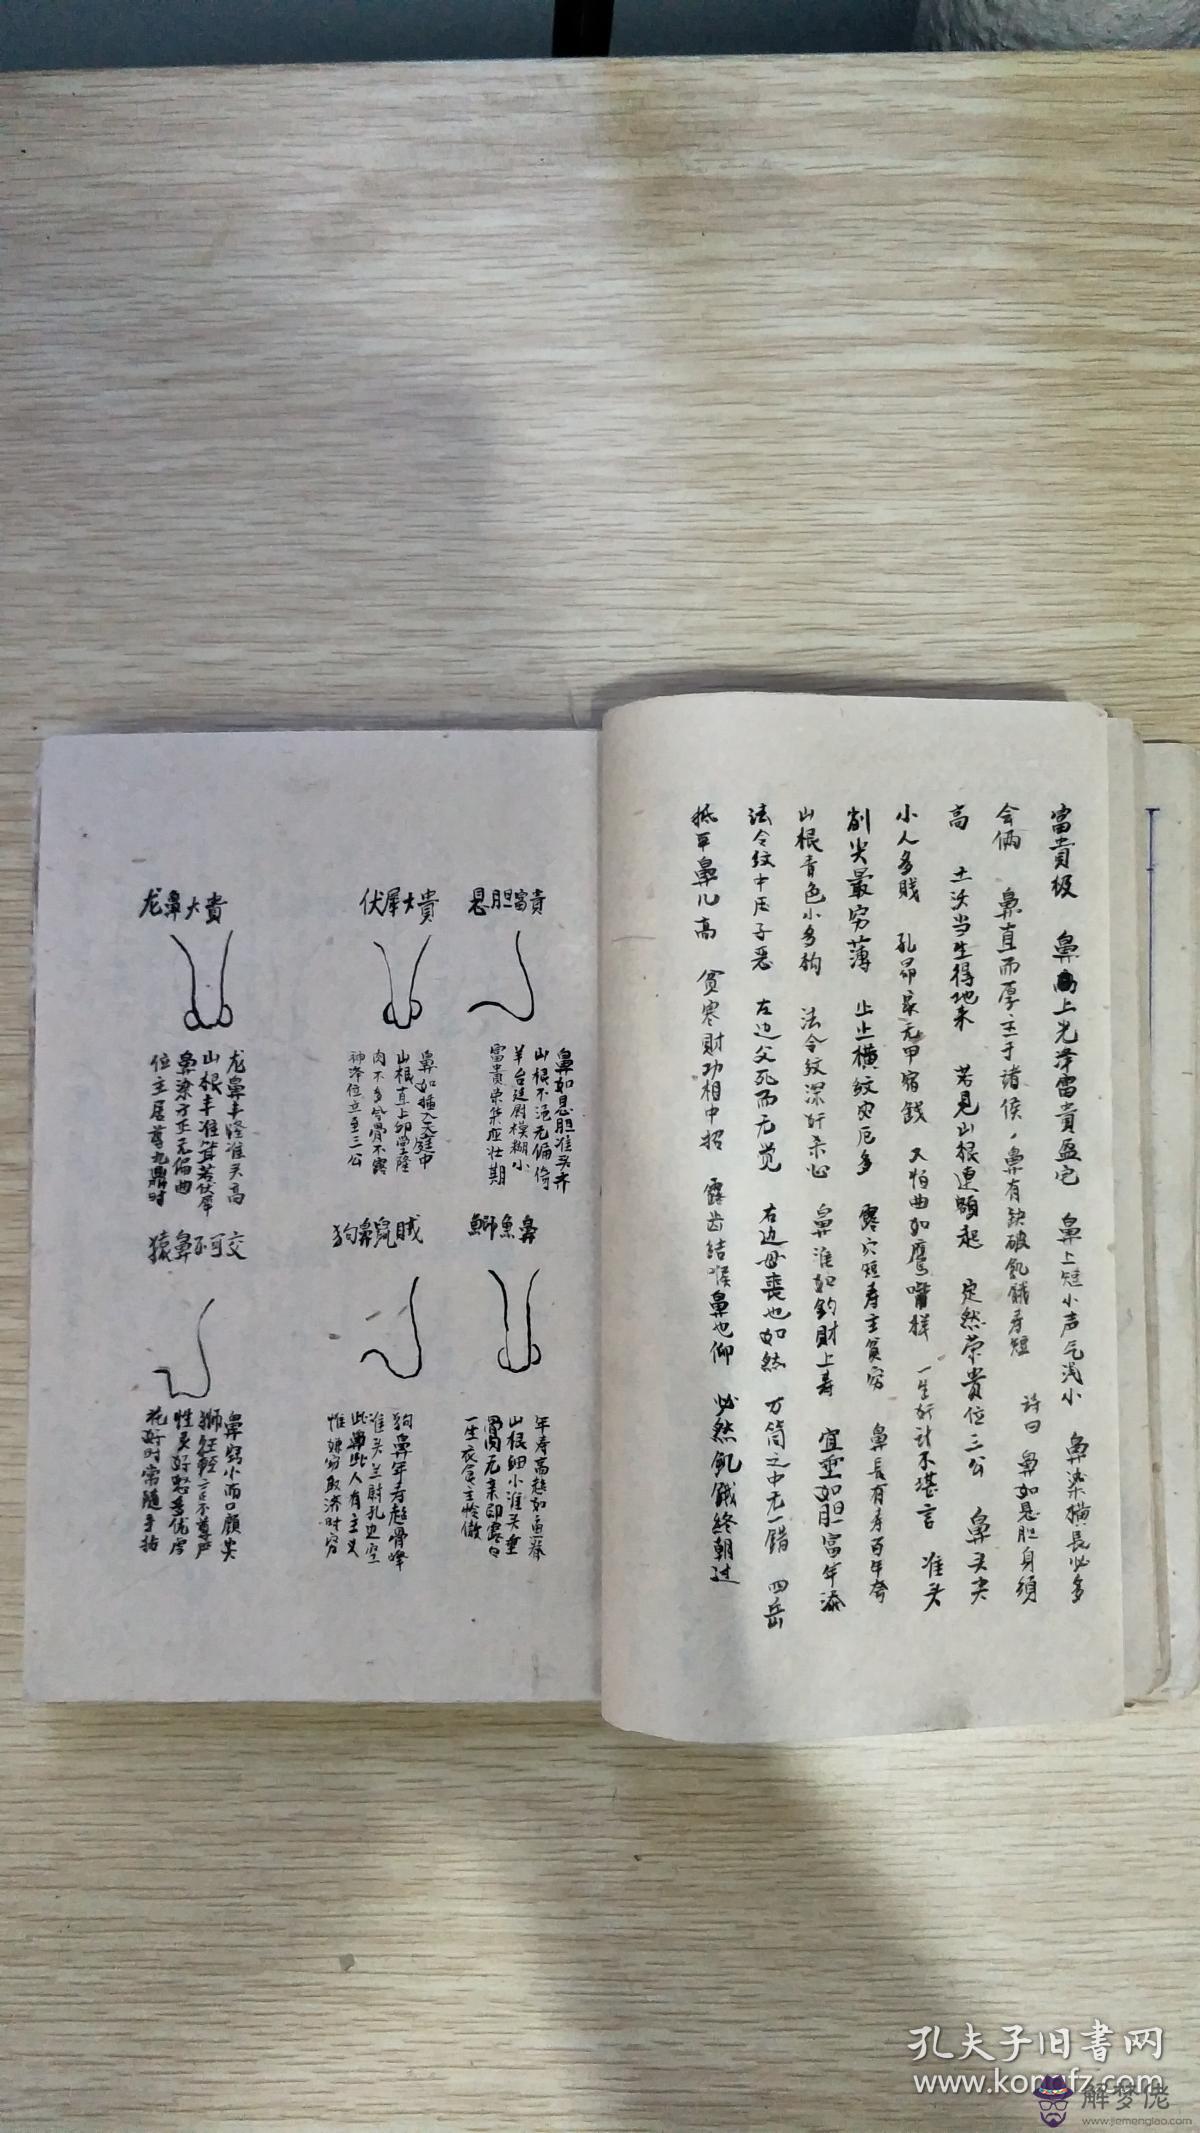 富貴极 鼻上光泽富貴盈宅 鼻上短小声气浅小 鼻梁横長必多
会俩 鼻直而厚主于诸侯，鼻有缺破飢餓寿短 诗曰 鼻如悬胆身须
高 土沃当生得地来 若見山根連額起 定然荣貴位三公 鼻头尖
小人多賤 孔昂家无甲宿錢 又怕曲如鹰嘴样 一生奸计不堪言 准头
削尖最穷薄 止止横紋灾厄多 露穴短寿主貧穷 鼻長有寿百年夸
山根青色小多 法令纹深奸杀心 鼻准如钓財上寿 宜垂如胆富年添
法令纹中压子恶 左边父死而无觉 右边母丧也如然 万筒之中无一错 四岳
抵平鼻儿高 貧寒財功相中招 露齿結喉鼻也仰 必然飢餓终朝过
悬胆富貴
鼻如悬胆准头齐
山根不浥无偏倚
羊台廷尉模糊小
富貴荣华应壮期
伏犀大貴
鼻如插入天庭中
山根直上印堂隆
肉不多兮骨不露
神净位立至三公
龙鼻大貴
龙鼻丰隆准头高
山根丰准耸若伏犀
鼻梁方正无偏曲
位主居尊九鼎时
鰤魚鼻
年寿高起如鱼脊
山根细小准头垂
骨肉无亲印露白
一生衣食主怜傲
狗鼻鼠贼
狗鼻年寿起骨峰
准头兰尉孔边空
此鼻此人有主义
惟嫌窃取济时穷
猿鼻不可交
鼻窍小而口顾尖
狮狂輕言不尊严
性灵好怒多优虑
花好时常随手拈
孔夫子旧書网
www.kongfz.com
解梦佬
www.jiemenglao.com